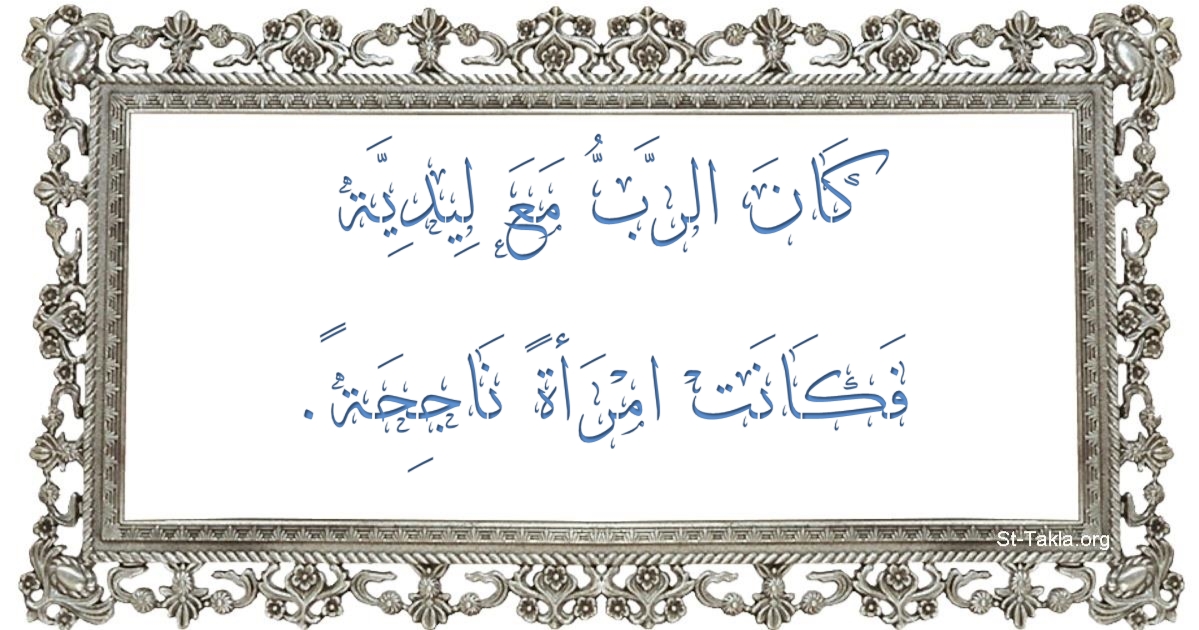 كَانَ الرَّبُّ مَعَ لِيدِيَّة
فَكَانَتْ امْرَأةً نَاجِحَةً.
St-Takla.org